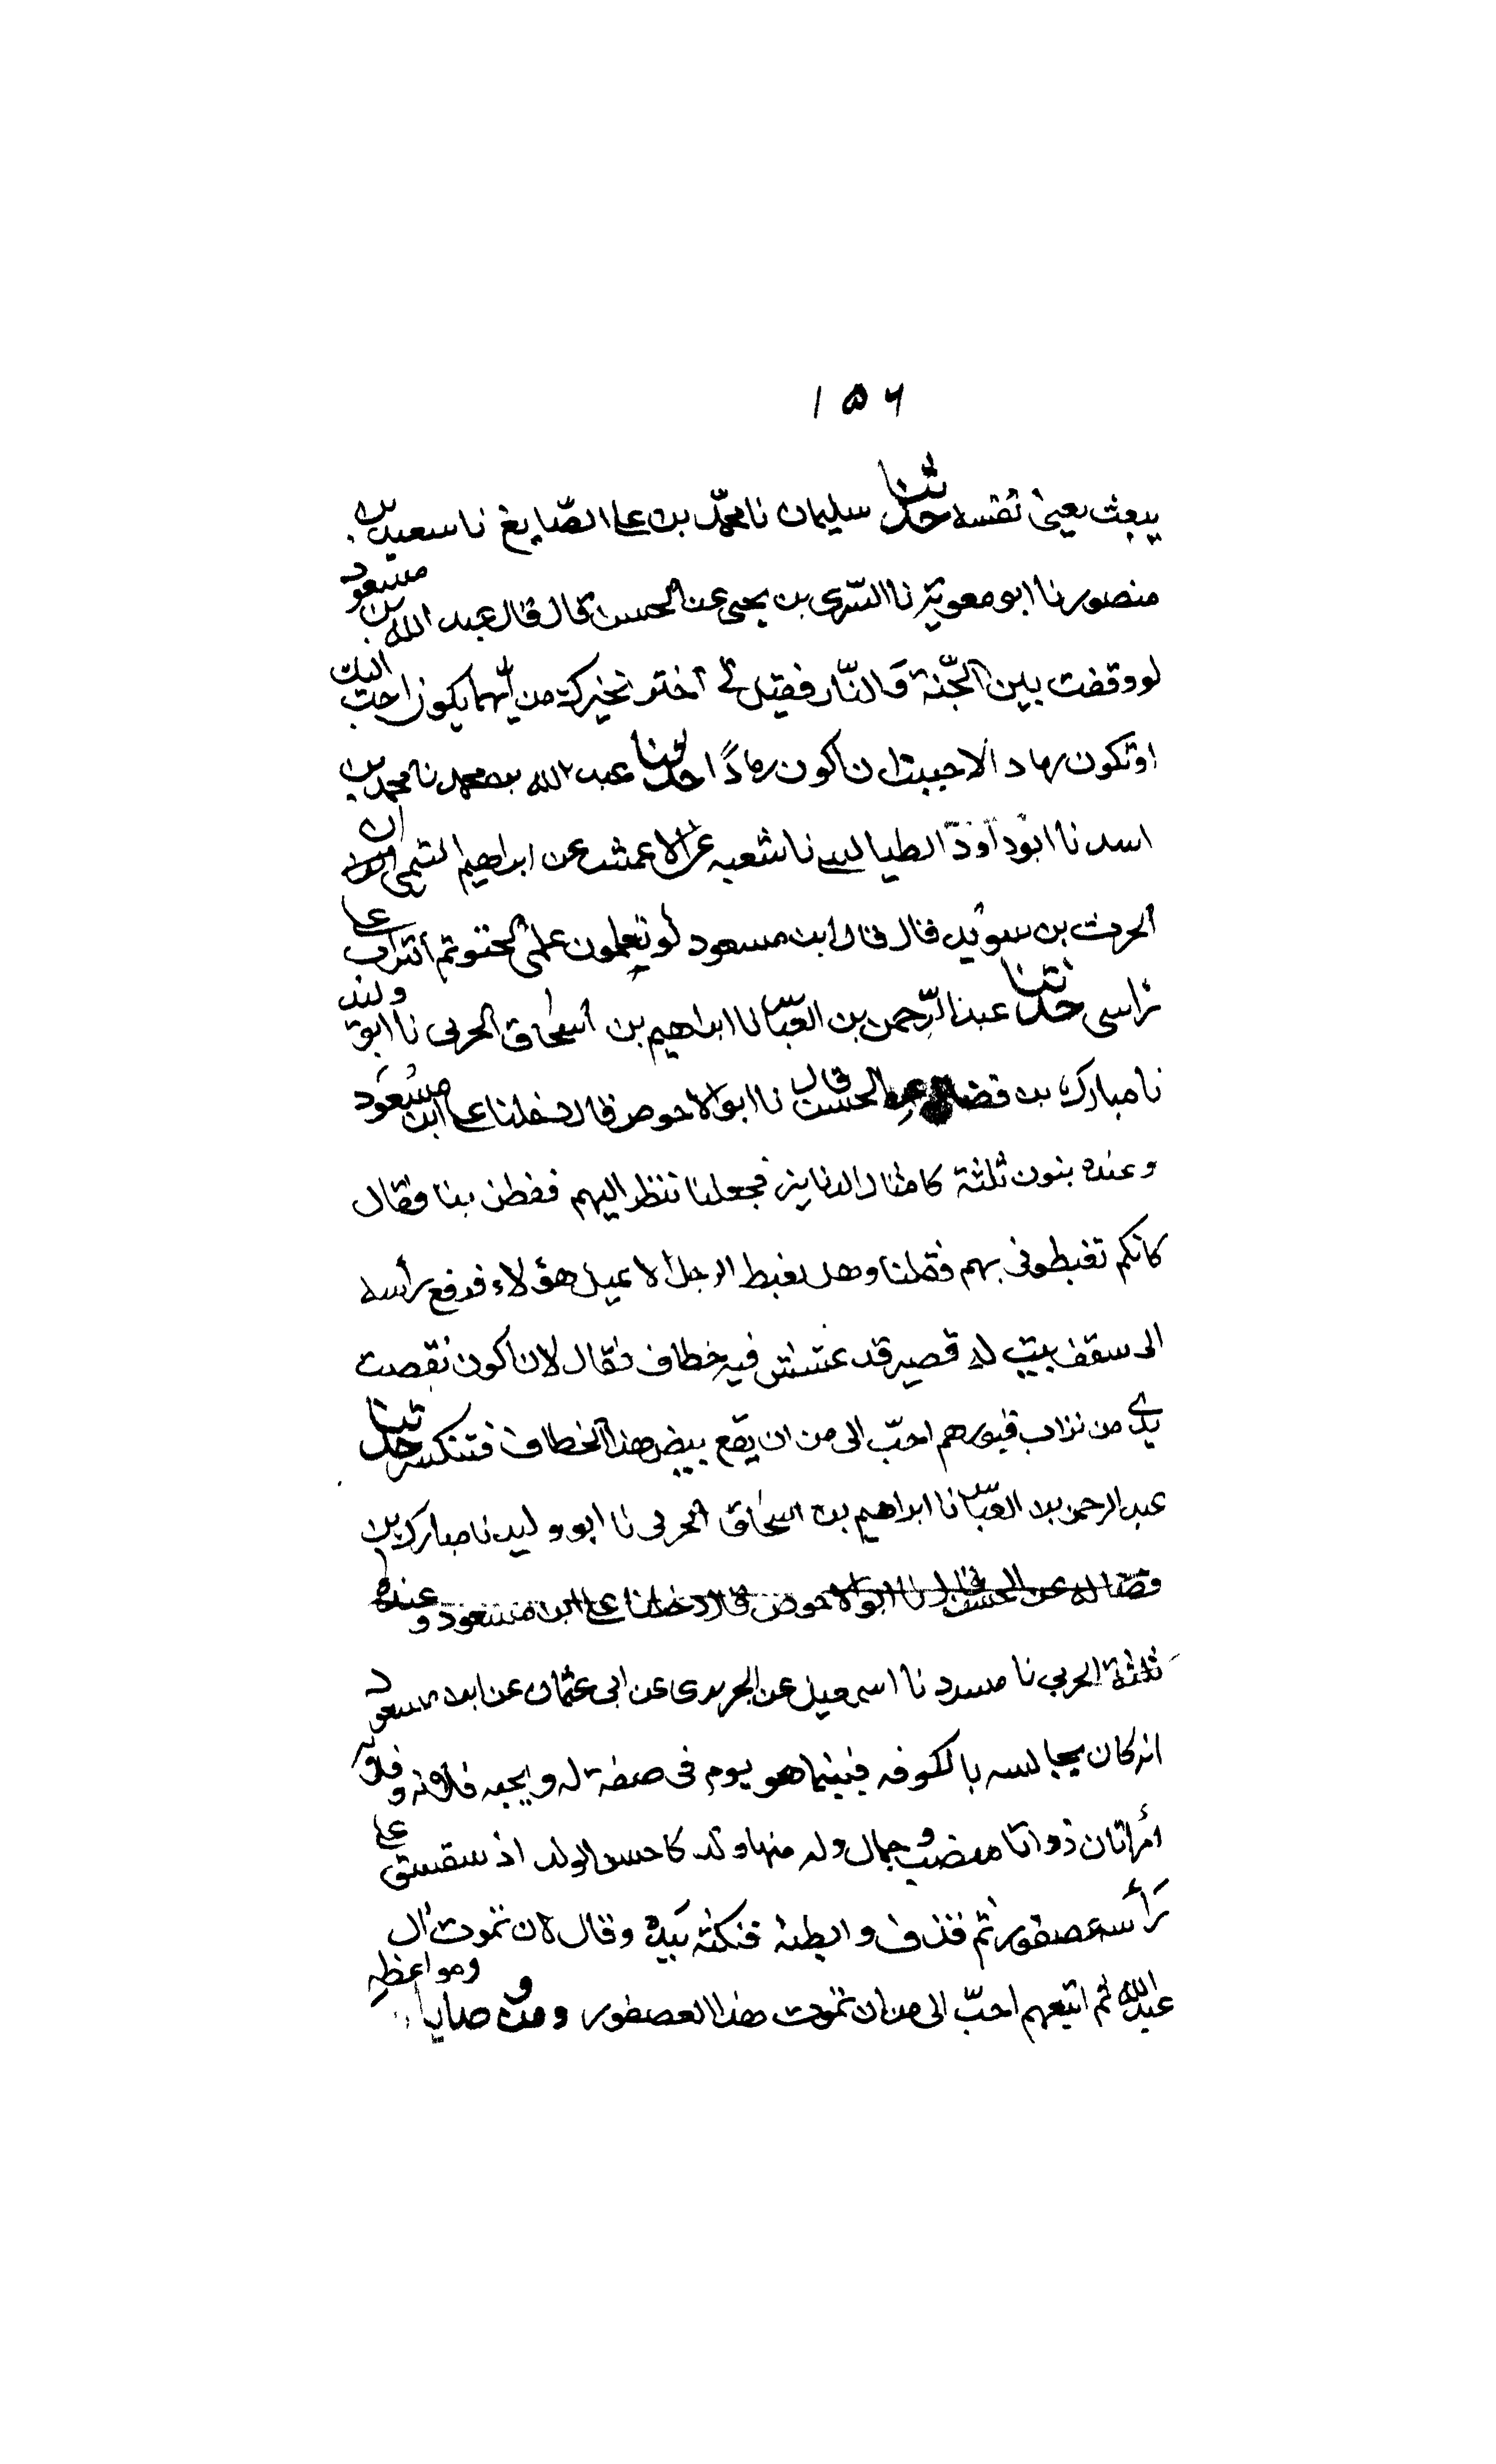 ١٥٦
يبعث يعنى نفسه حدثنا سليمان نا محمّد بن على الصّايغ نا سعيد بن
منصور نا ابو معوية نا السّرى بن يحيى عن الحسن قال قال عبد الله بن مسعود
لو وقفت بين الجّنة وَالنّار فقيل لى اختر نخيرك من أيّهما يكون احب اليك
او تكون رمادا لاحببت ان اكون رمادًا حدثنا عبد الله بن محمد نا محمد بن
اسد نا ابو داود الطيالسى نا شعبه عن الاعمش عن ابراهيم التيمى
الحرث بن سويد قال قال ابن مسعود لو تعلمون علمى لحثوتم التراب على
راسى حدثنا عبد الرّحمن بن العبّاس نا ابراهيم بن اسحاق الحربى نا ابو وليد
نا مبارك بن فضاله عن الحسن قال نا ابو الاحوص قال دخلنا على ابن مسعود
وعنده بنون ثلثة كامثال الدنانير فجعلنا ننظر اليهم ففطن بنا وقال
كانكم تغبطونى بهم فقلنا وهل يغبط الرجل الا بمثل هؤلاء فرفع رأسه
الى سقف بيت له قصير قد عشش فيه خطاف فقال لان اكون نفصت
يدى من تراب قبورهم احبّ الى من ان يقع بيض هذا الخطاف فتنكسر حدثنا
عبد الرحمن بن العبّاس نا ابراهيم بن اسحاق الحربى نا ابو وليد نا مبارك بن
فضاله عن الحسن قال نا ابو الاحوص قال دخلنا على ابن مسعود وعنده
ثلثة الحربي نا مسدد نا اسمعيل عن الجريرى عن ابى عثمان عن ابن مسعود
انه كان يجالسه بالكوفه فبينما هو يوم فى صفة له و تحته فلانه وفلانه
امراتان ذواتا منصب وجمال وله منهما ولد كاحسن الولد اذ سقسق على
رأسه عصفور ثم قذف ذا بطنه فنكته بيده وقال لان تموت ال
عبد الله ثم اتبعهم احبّ الى من ان تموت هذا العصفور ومن وصايا ومواعظه